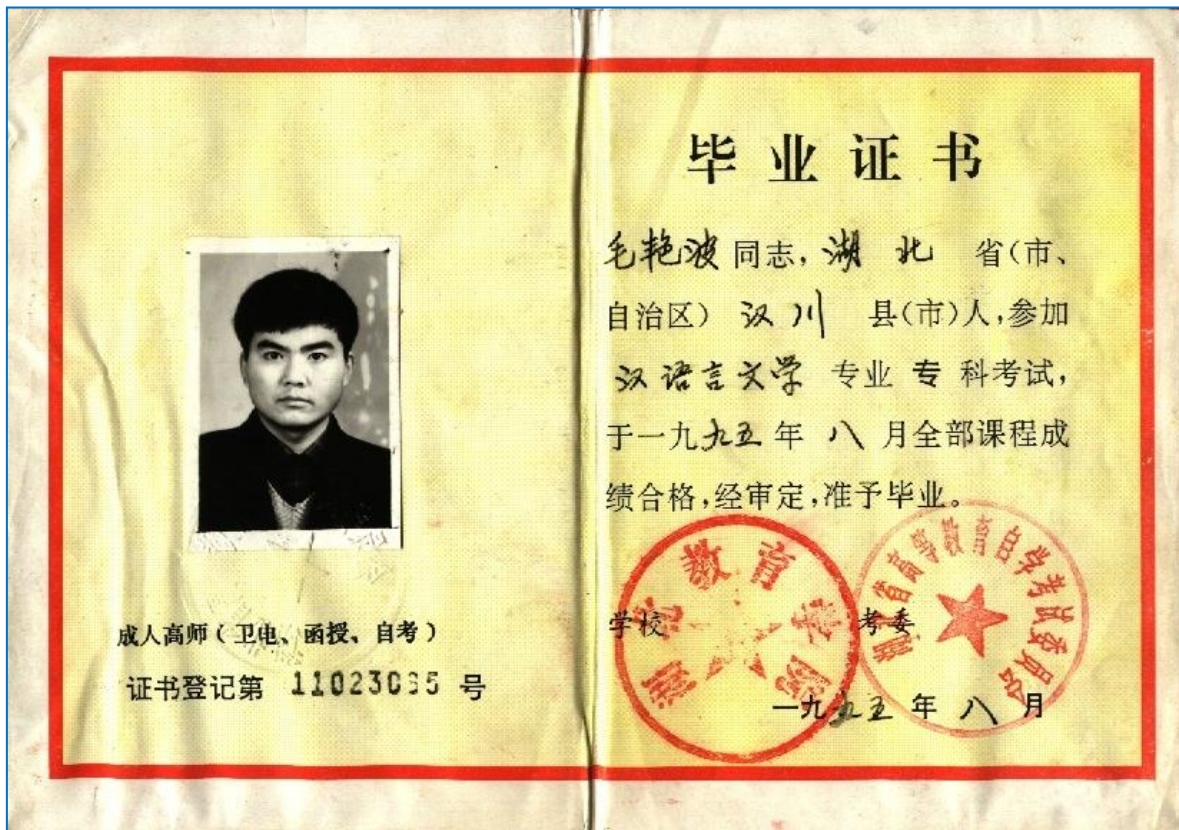 成人高师（卫电、函授、自考）
证书登记第 11023095 号
毕业证书
毛艳波同志，湖北 省（市、
自治区）汉川 县（市）人，参加
汉语言文学 专业 专 科考试，
于一九九五年 八 月全部课程成
绩合格，经审定，准予毕业。
湖北教育学院
湖北省高等教育自学考试委员会
学校 考委
一九九五年八月